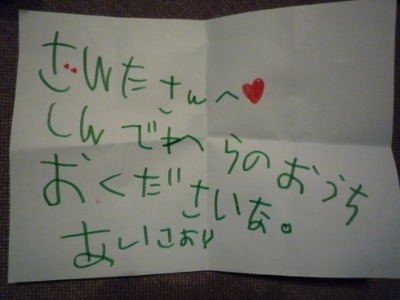 さんたさんへ♥
しんでれらのおうち
おくださいな。